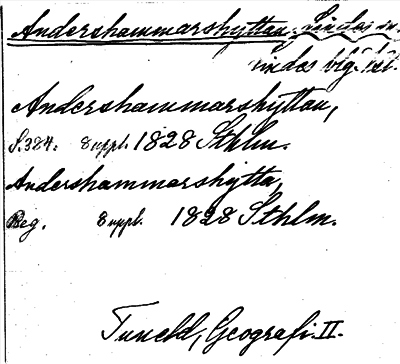 Andershammarshyttan, Lindes sn.
Lindes blg. Lst.
Andershammarshyttan,
S. 384. 8 uppl. 1828 Sthlm.
Andershammarshytta,
Reg. 8 uppl. 1828 Sthlm.
Tuneld, Geografi. II.